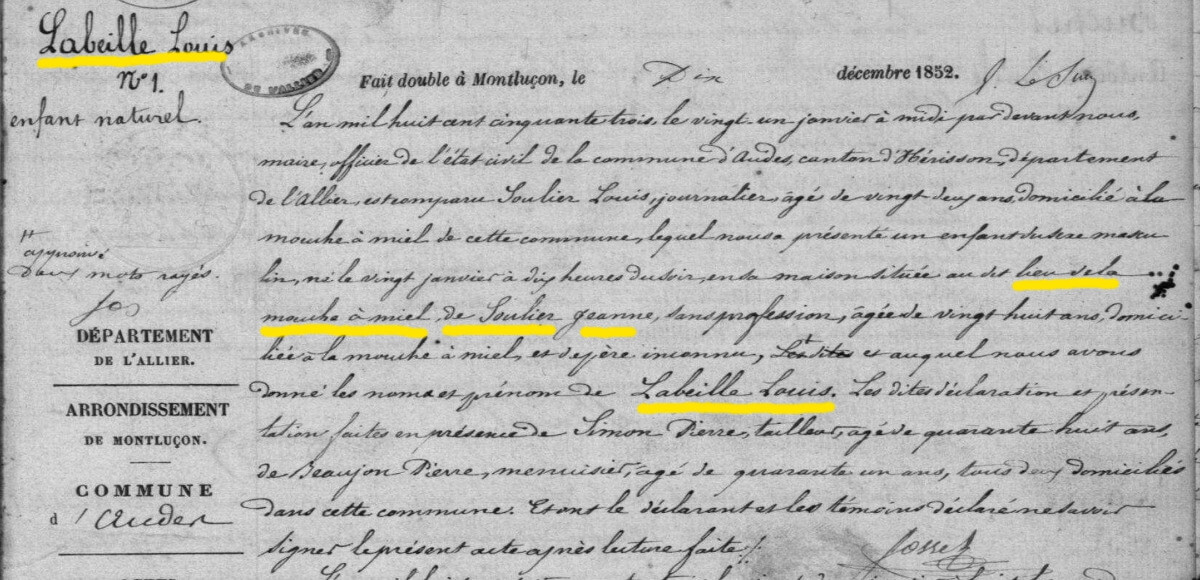 Labeille Louis
N° 1.
enfant naturel.
ARCHIVES
DE L'ALLIER
Fait double à Montluçon, le Dix décembre 1852.
L'an mil huit cent cinquante trois, le vingt-un janvier à midi par devant nous,
maire, officier de l'état civil de la commune d'Audes, canton d'Hérisson, département
de l'Allier, est comparu Soulier Louis, journalier, âgé de vingt deux ans, domicilié à la
mouche à miel de cette commune, lequel nous a présenté un enfant du sexe mascu
lin, né le vingt janvier à dix heures du soir, en sa maison située au dit lieu de la
mouche à miel, de Soulier Jeanne, sans profession, âgée de vingt huit ans, domici-
liée à la mouche à miel, et de père inconnu, et auquel nous avons
donné les noms et prénom de Labeille Louis. Les dites déclaration et présen-
tation faites en présence de Simon Pierre, tailleur, âgé de quarante huit ans,
de Beaujon Pierre, menuisier, âgé de quarante un ans, tous deux domiciliés
dans cette commune. Et ont le déclarant et les témoins déclaré ne savoir
signer le présent acte après lecture faite
approuvé
deux mots rayés.
DÉPARTEMENT
DE L'ALLIER.
ARRONDISSEMENT
DE MONTLUÇON.
COMMUNE
d'Audes